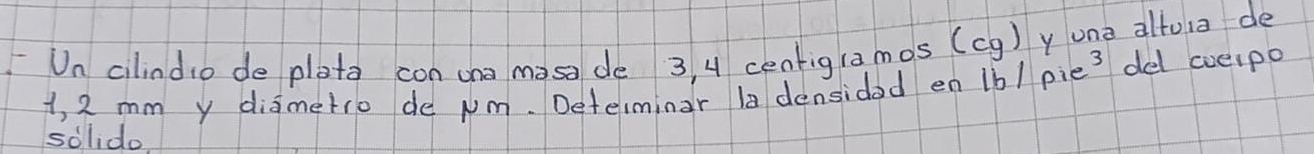 - Un cilindro de plata con una masa de 3,4 centigramos (cg) y una altura de
1,2 mm y diámetro de μm. Determinar la densidad en lb/pie³ del cuerpo
sólido